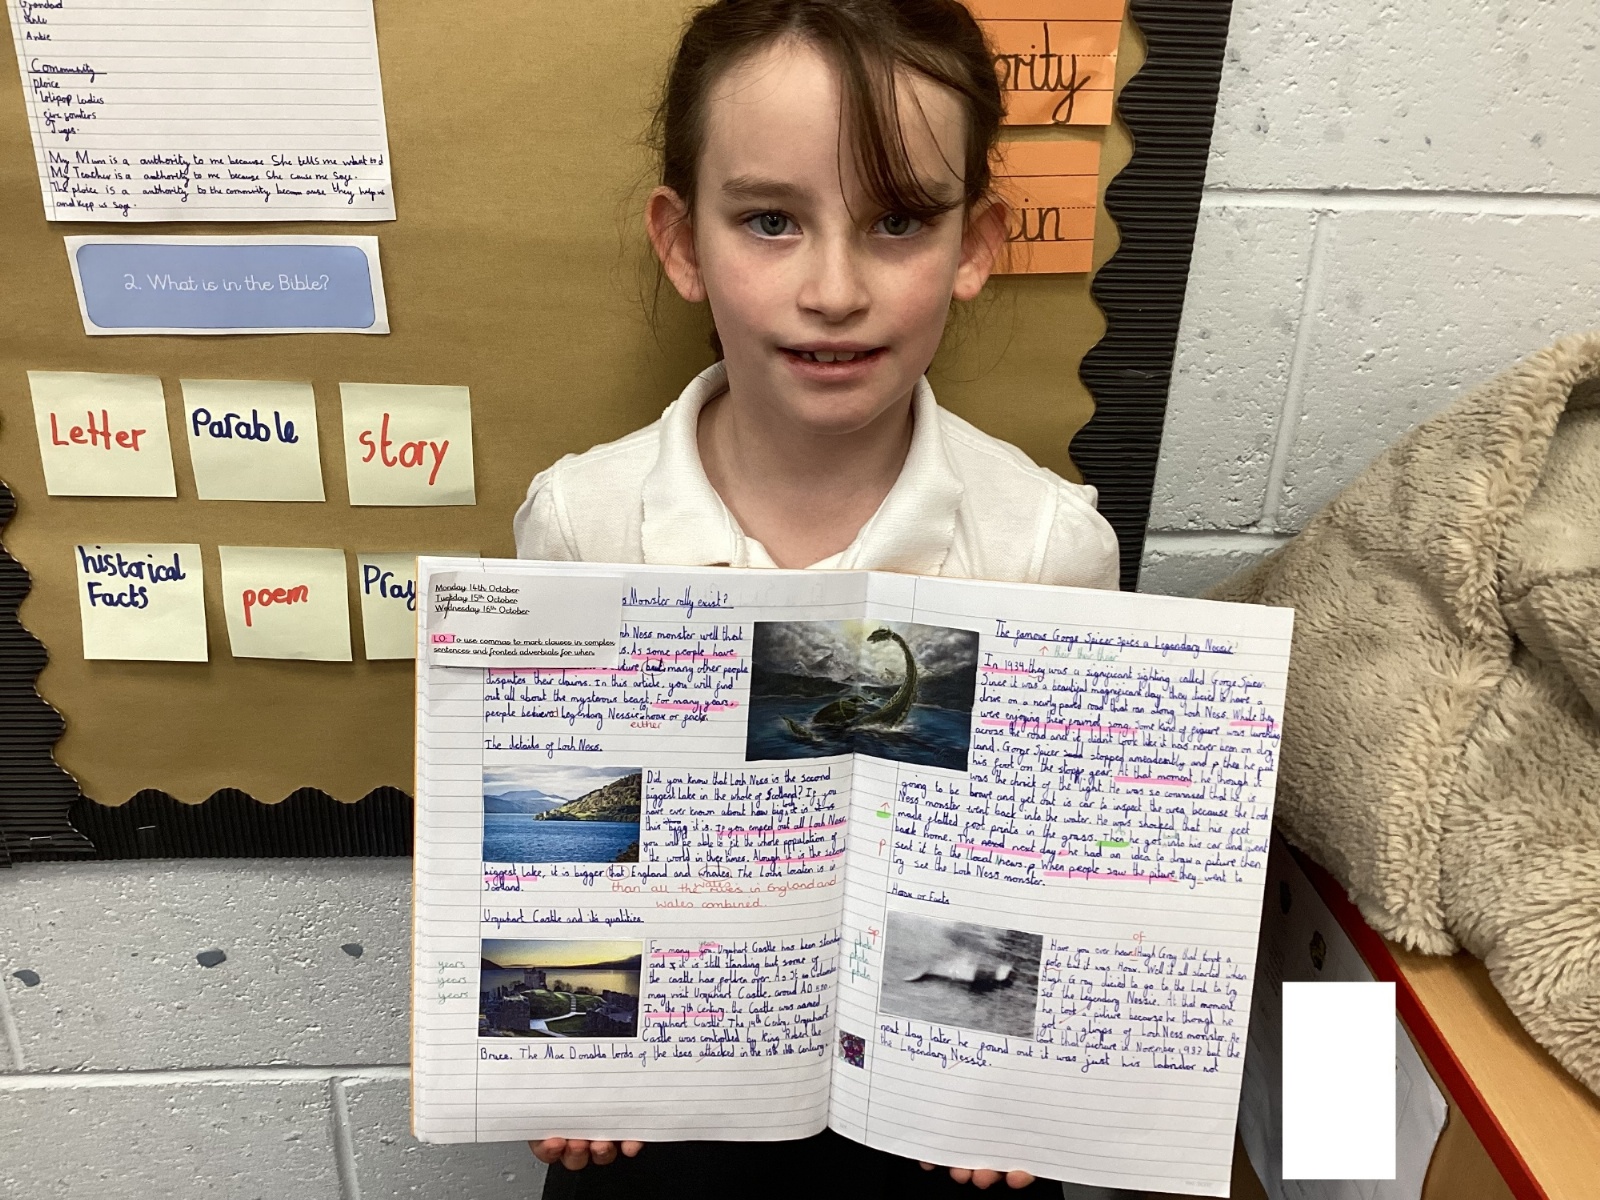 Grandad
Ankie
Community
ploice
lolipop ladies
Juges.
My Mum is a authority to me because She tells me what to d
My Teacher is a authority to me because She cares me Saye.
The ploice is a authority to the community becam ause they helps us
and kepp us saye.
2. What is in the Bible?
Letter
Parable
story
historical
Facts
poem
Pray
ority
in
Monday 14th October
Tuesday 15th October
Wednesday 16th October
LO: To use commas to mark clauses in complex
sentences and fronted adverbials for when
s Monster rally exist?
Ness monster well that
s. As some people have
but many other people
disputes their claims. In this article, you will find
out all about the mysterous beast. For many years,
people believed legendary Nessie hoax or facts.
either
The details of Loch Ness.
Did you know that Loch Ness is the second
biggest lake in the whole of Scotland? If you
have ever known about how big it is
this bigg it is. If you emped out all Loch Ness,
you will be able to fit the whole population of
the world in three times. Alough it is the second
biggest Lake, it is bigger that England and Whales. The Lochs locaten is in
Scotland.
than all the water in England and
Wales combined.
Urquhart Castle and its qualities
For many Urquhart Castle has been standing
and it is still standing but some of
the castle has pollen over. As St Columba
may visit Urquhart Castle around AD
In the 7th Century, the Castle was named
Urquhart Castle. The 14th Centry, Urquhart
Castle was controlled by King Robert the
Bruce. The Mac Donalds lords of the isles attacked in the 15th 16th century.
years
years
years
The famous Gorge Spicer spies a Legendary Nessie!
their their their
In 1934, they was a significant sighting called Gorge Spicer.
Since it was a beautiful magnificent day, they dicied to have a
drive on a newly paved road that ran along Loch Ness. While they
were enjoying their song, Some kind of figure was lurching
across the road and it didn't look like it has never been on dry
land. Gorge Spicer stopped and then he put
his foot on the stopp gear. At that moment, he though it
was the christ of the light. He was so convinsed that he is
going to be brave and get out is car to inspect the area, because the Loch
Ness monster went back into the water. He was shocked that his feet
made flatted foot prints in the grass. Then he got into his car and went
back home. The next day, he had an idea to draw a picture then
sent it to the local news. When people saw the picture, they went to
try see the Loch Ness monster.
Hoax or Facts
of
sp
photo
photo
photo
Have you ever heard Hugh Gray that tooke a
poto but it was Hoax. Well it all started when
Hugh Gray dicied to go to the Loch to try
see the Legendary Nessie. At that moment
he took a picture because he through he
got a glimps of Loch Ness monster. He
took that picture in November 1933 but the
next day later he pound out it was just his labrador not
the Legendary Nessie.